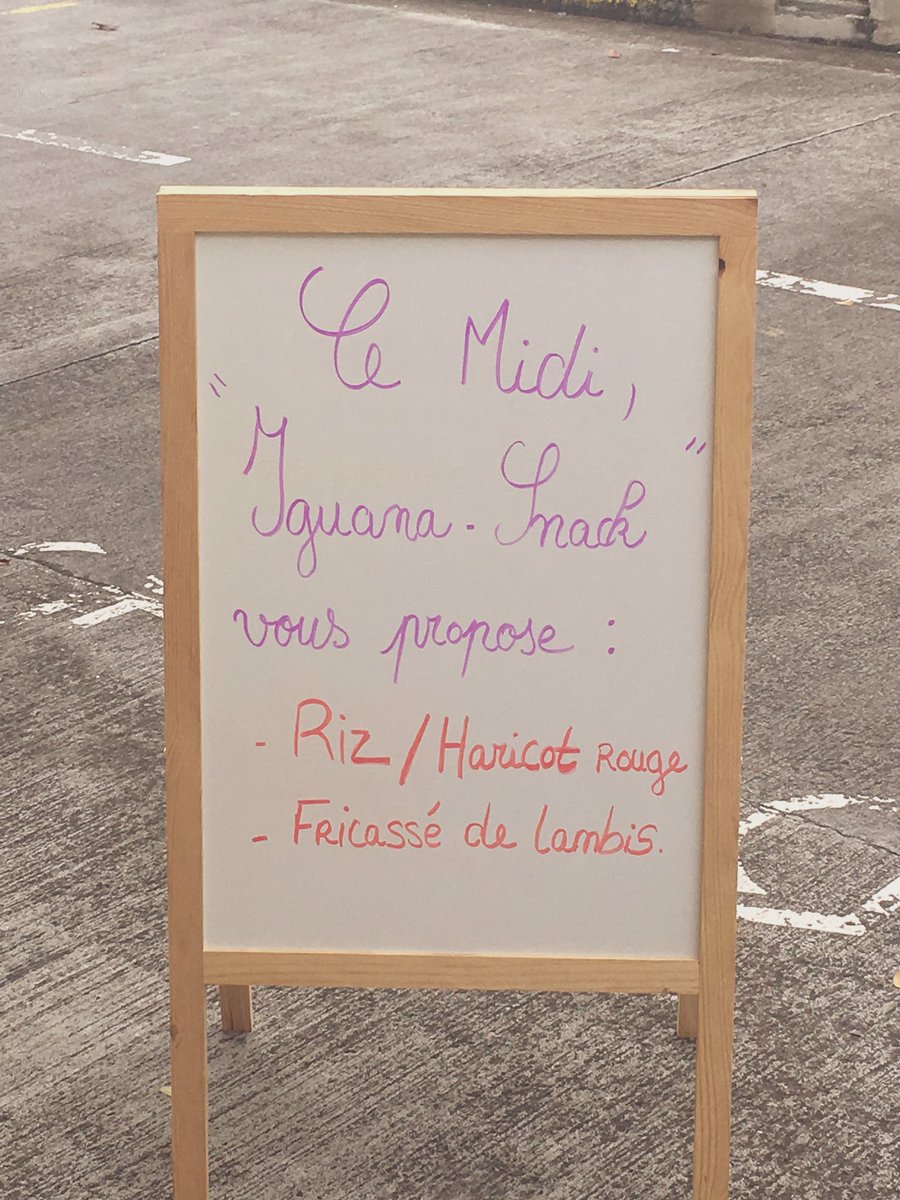 Ce Midi,
"Iguana-Snack"
vous propose :
- Riz / Haricot Rouge
- Fricassé de lambis.